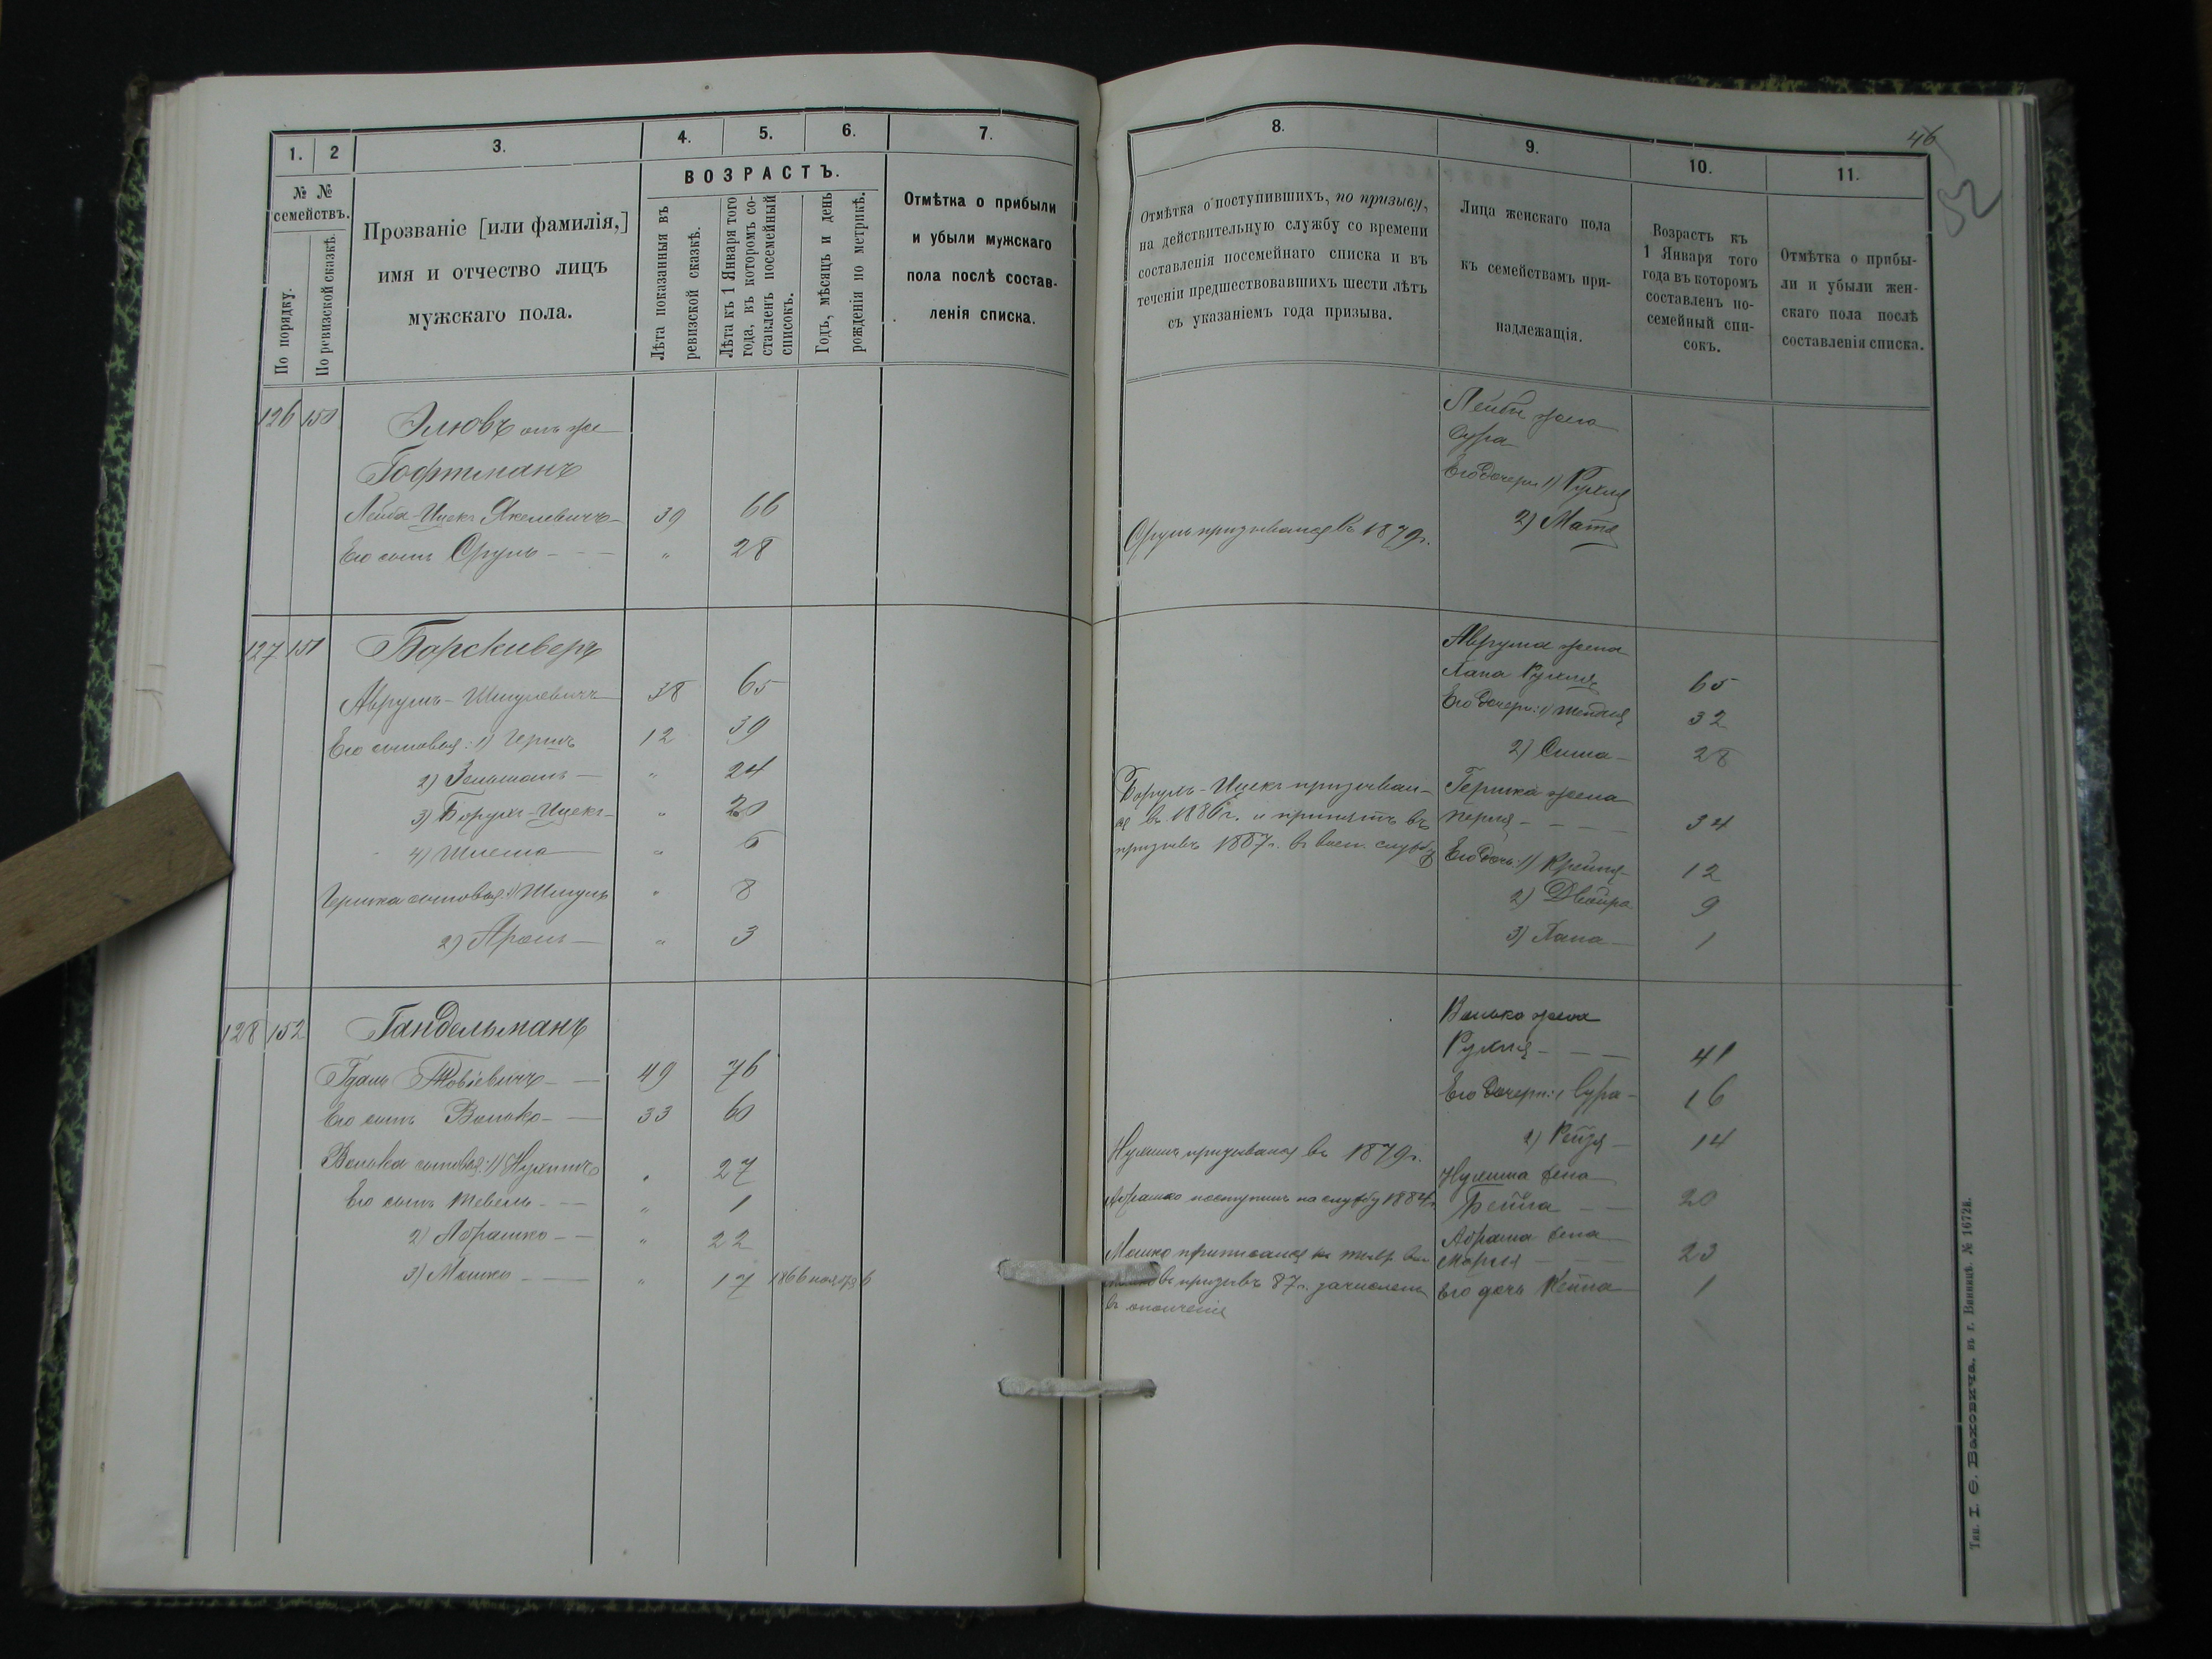 1. 2 3. 4. 5. 6. 7.
№ № семействъ.
По порядку.
По ревизской сказкѣ.
Прозваніе [или фамилія,]
имя и отчество лицъ
мужскаго пола.
ВОЗРАСТЪ.
Лѣта показанныя въ
ревизской сказкѣ.
Лѣта къ 1 Января того
года, въ которомъ со-
ставленъ посемейный
списокъ.
Годъ, мѣсяцъ и день
рожденія по метрикѣ.
Отмѣтка о прибыли
и убыли мужскаго
пола послѣ состав-
ленія списка.
126 150 Элювъ онъ же
Гофтманъ
Лейба-Ицекъ Якелевичъ 39 66
Его сынъ Сруль - - - " 28
127 151 Борскиверъ
Аврумъ-Шмулевичъ 38 65
Его сыновья: 1) Гершъ 12 39
2) Зельманъ " 24
3) Борухъ-Ицекъ " 20
4) Шлема " 6
Гершка сыновья: 1) Шмуль " 8
2) Аронъ " 3
128 152 Гандельманъ
Гдаль Товіевичъ 49 76
Его сынъ Волько 33 60
Волька сыновья: 1) Нухимъ " 27
Его сынъ Тевель " 1
2) Абрашко " 22
3) Мошко " 17 1866 ноября 6
46
52
8. 9. 10. 11.
Отмѣтка о поступившихъ, по призыву,
на дѣйствительную службу со времени
составленія посемейнаго списка и въ
теченіи предшествовавшихъ шести лѣтъ
съ указаніемъ года призыва.
Лица женскаго пола
къ семействамъ при-
надлежащія.
Возрастъ къ
1 Января того
года въ которомъ
составленъ по-
семейный спи-
сокъ.
Отмѣтка о прибы-
ли и убыли жен-
скаго пола послѣ
составленія списка.
Лейби жена
Сура
Его дочери 1) Рухля
2) Матя
Сруль призывался въ 1879 г.
Аврума жена
Хана Рухля 65
Его дочери: 1) Шейдля 32
2) Сима 28
Борухъ-Ицекъ призывал-
ся въ 1886 г. и принятъ въ
призывъ 1887 г. въ воен. службу
Гершка жена
Перля - - - 34
Его дочь: 1) Крейня 12
2) Двойра 9
3) Хана 1
Волько жена
Рухля - - - 41
Его дочери: 1) Сура 16
2) Рейзя 14
Нухимъ призывался въ 1879 г.
Нухима жена
Бейла 20
Абрашко поступилъ на службу 1884 г.
Абраша жена
Марья 23
Его дочь Кейла 1
Мошко приписался
въ призывъ 87 г. зачисленъ
въ ополченіе
Тип. І. Ѳ. Ваховича, въ г. Винницѣ. № 1672й.